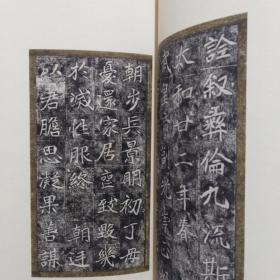 詮叙彝倫九流斯
太和廿二年春
朝步兵景明初丁母
憂還家居喪致毀幾
於滅性服終 朝廷
以君膽思凝果善謀